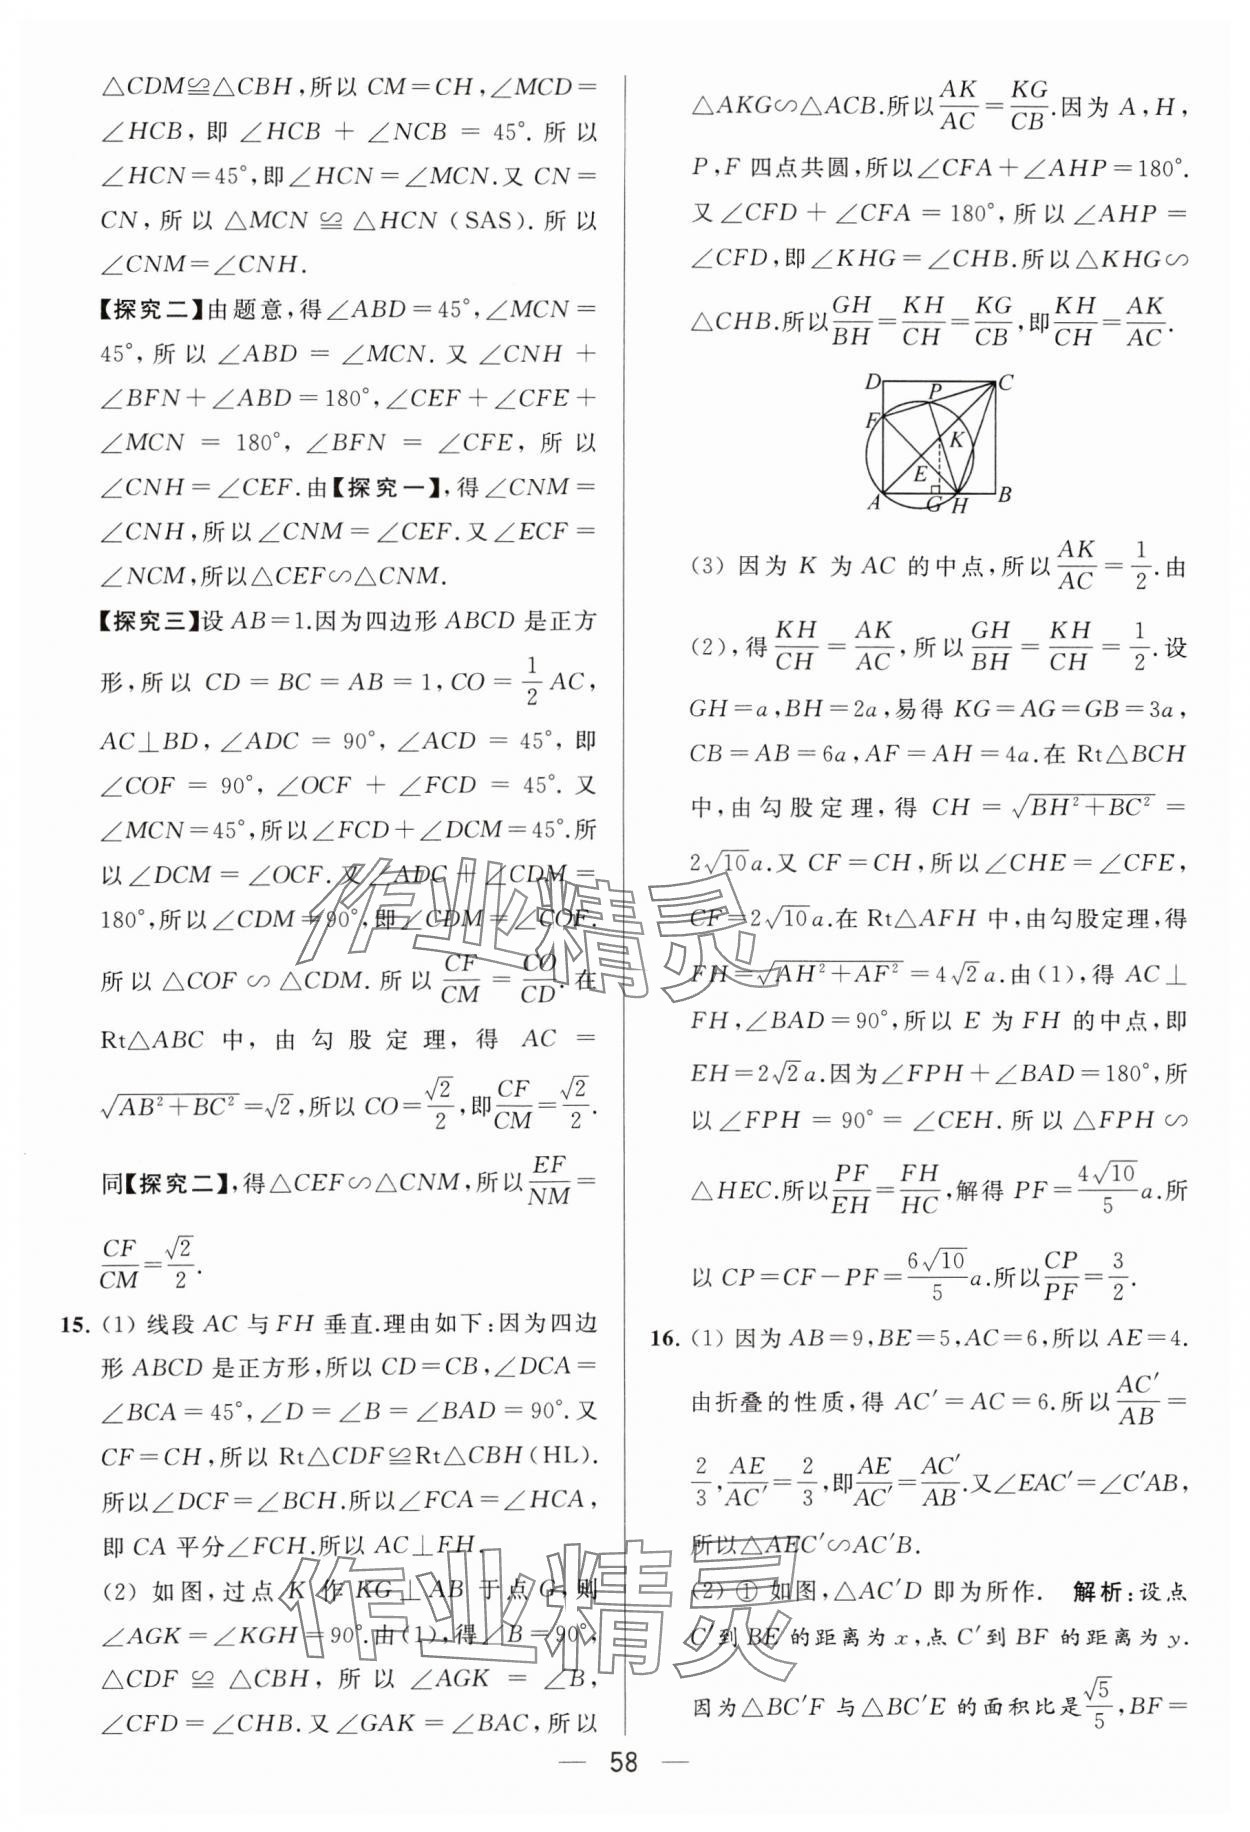 △CDM≌△CBH,所以 CM=CH,∠MCD=
∠HCB,即 ∠HCB + ∠NCB = 45°.所以
∠HCN=45°,即∠HCN=∠MCN.又 CN=
CN,所以 △MCN ≌ △HCN (SAS).所以
∠CNM=∠CNH.
【探究二】由题意,得∠ABD=45°,∠MCN=
45°,所以 ∠ABD = ∠MCN.又 ∠CNH +
∠BFN+∠ABD=180°,∠CEF+∠CFE+
∠MCN = 180°,∠BFN = ∠CFE,所以
∠CNH=∠CEF.由【探究一】,得∠CNM=
∠CNH,所以∠CNM=∠CEF.又∠ECF=
∠NCM,所以△CEF∽△CNM.
【探究三】设 AB=1.因为四边形 ABCD 是正方
形,所以 CD=BC=AB=1,CO=1/2 AC,
AC⊥BD,∠ADC = 90°,∠ACD = 45°,即
∠COF = 90°,∠OCF + ∠FCD = 45°.又
∠MCN=45°,所以∠FCD+∠DCM=45°.所
以∠DCM=∠OCF.又∠ADC+∠CDM=
180°,所以∠CDM=90°,即∠CDM=∠COF.
所以 △COF ∽ △CDM.所以 CF/CM = CO/CD.在
Rt△ABC 中,由勾股定理,得 AC =
√(AB²+BC²)=√2,所以 CO=√2/2,即CF/CM=√2/2.
同【探究二】,得△CEF∽△CNM,所以EF/NM=
CF/CM=√2/2.
15. (1) 线段 AC 与 FH 垂直.理由如下:因为四边
形 ABCD 是正方形,所以 CD=CB,∠DCA=
∠BCA=45°,∠D=∠B=∠BAD=90°.又
CF=CH,所以 Rt△CDF≌Rt△CBH(HL).
所以∠DCF=∠BCH.所以∠FCA=∠HCA,
即 CA 平分∠FCH.所以 AC⊥FH.
(2) 如图,过点 K 作 KG⊥AB 于点 G,则
∠AGK=∠KGH=90°.由(1),得∠B=90°,
△CDF ≌ △CBH,所以 ∠AGK = ∠B,
∠CFD=∠CHB.又∠GAK=∠BAC,所以
△AKG∽△ACB.所以AK/AC=KG/CB.因为 A,H,
P,F 四点共圆,所以∠CFA+∠AHP=180°.
又∠CFD+∠CFA=180°,所以∠AHP=
∠CFD,即∠KHG=∠CHB.所以△KHG∽
△CHB.所以GH/BH=KH/CH=KG/CB,即KH/CH=AK/AC.
D P C
F K
E
A G H B
(3) 因为 K 为 AC 的中点,所以AK/AC=1/2.由
(2),得KH/CH=AK/AC,所以GH/BH=KH/CH=1/2.设
GH=a,BH=2a,易得 KG=AG=GB=3a,
CB=AB=6a,AF=AH=4a.在 Rt△BCH
中,由勾股定理,得 CH=√(BH²+BC²)=
2√10a.又 CF=CH,所以∠CHE=∠CFE,
CF=2√10a.在 Rt△AFH 中,由勾股定理,得
FH=√(AH²+AF²)=4√2a.由(1),得 AC⊥
FH,∠BAD=90°,所以 E 为 FH 的中点,即
EH=2√2a.因为∠FPH+∠BAD=180°,所
以∠FPH=90°=∠CEH.所以△FPH∽
△HEC.所以PF/EH=FH/HC,解得 PF=4√10/5 a.所
以 CP=CF-PF=6√10/5 a.所以CP/PF=3/2.
16. (1) 因为 AB=9,BE=5,AC=6,所以 AE=4.
由折叠的性质,得 AC′=AC=6.所以AC′/AB=
2/3,AE/AC′=2/3,即AE/AC′=AC′/AB.又∠EAC′=∠C′AB,
所以△AEC′∽AC′B.
(2) ① 如图,△AC′D 即为所作. 解析:设点
C′到 BE 的距离为 x,点 C′到 BF 的距离为 y.
因为△BC′F 与△BC′E 的面积比是√5/5,BF=
— 58 —
作业精灵
作业精灵